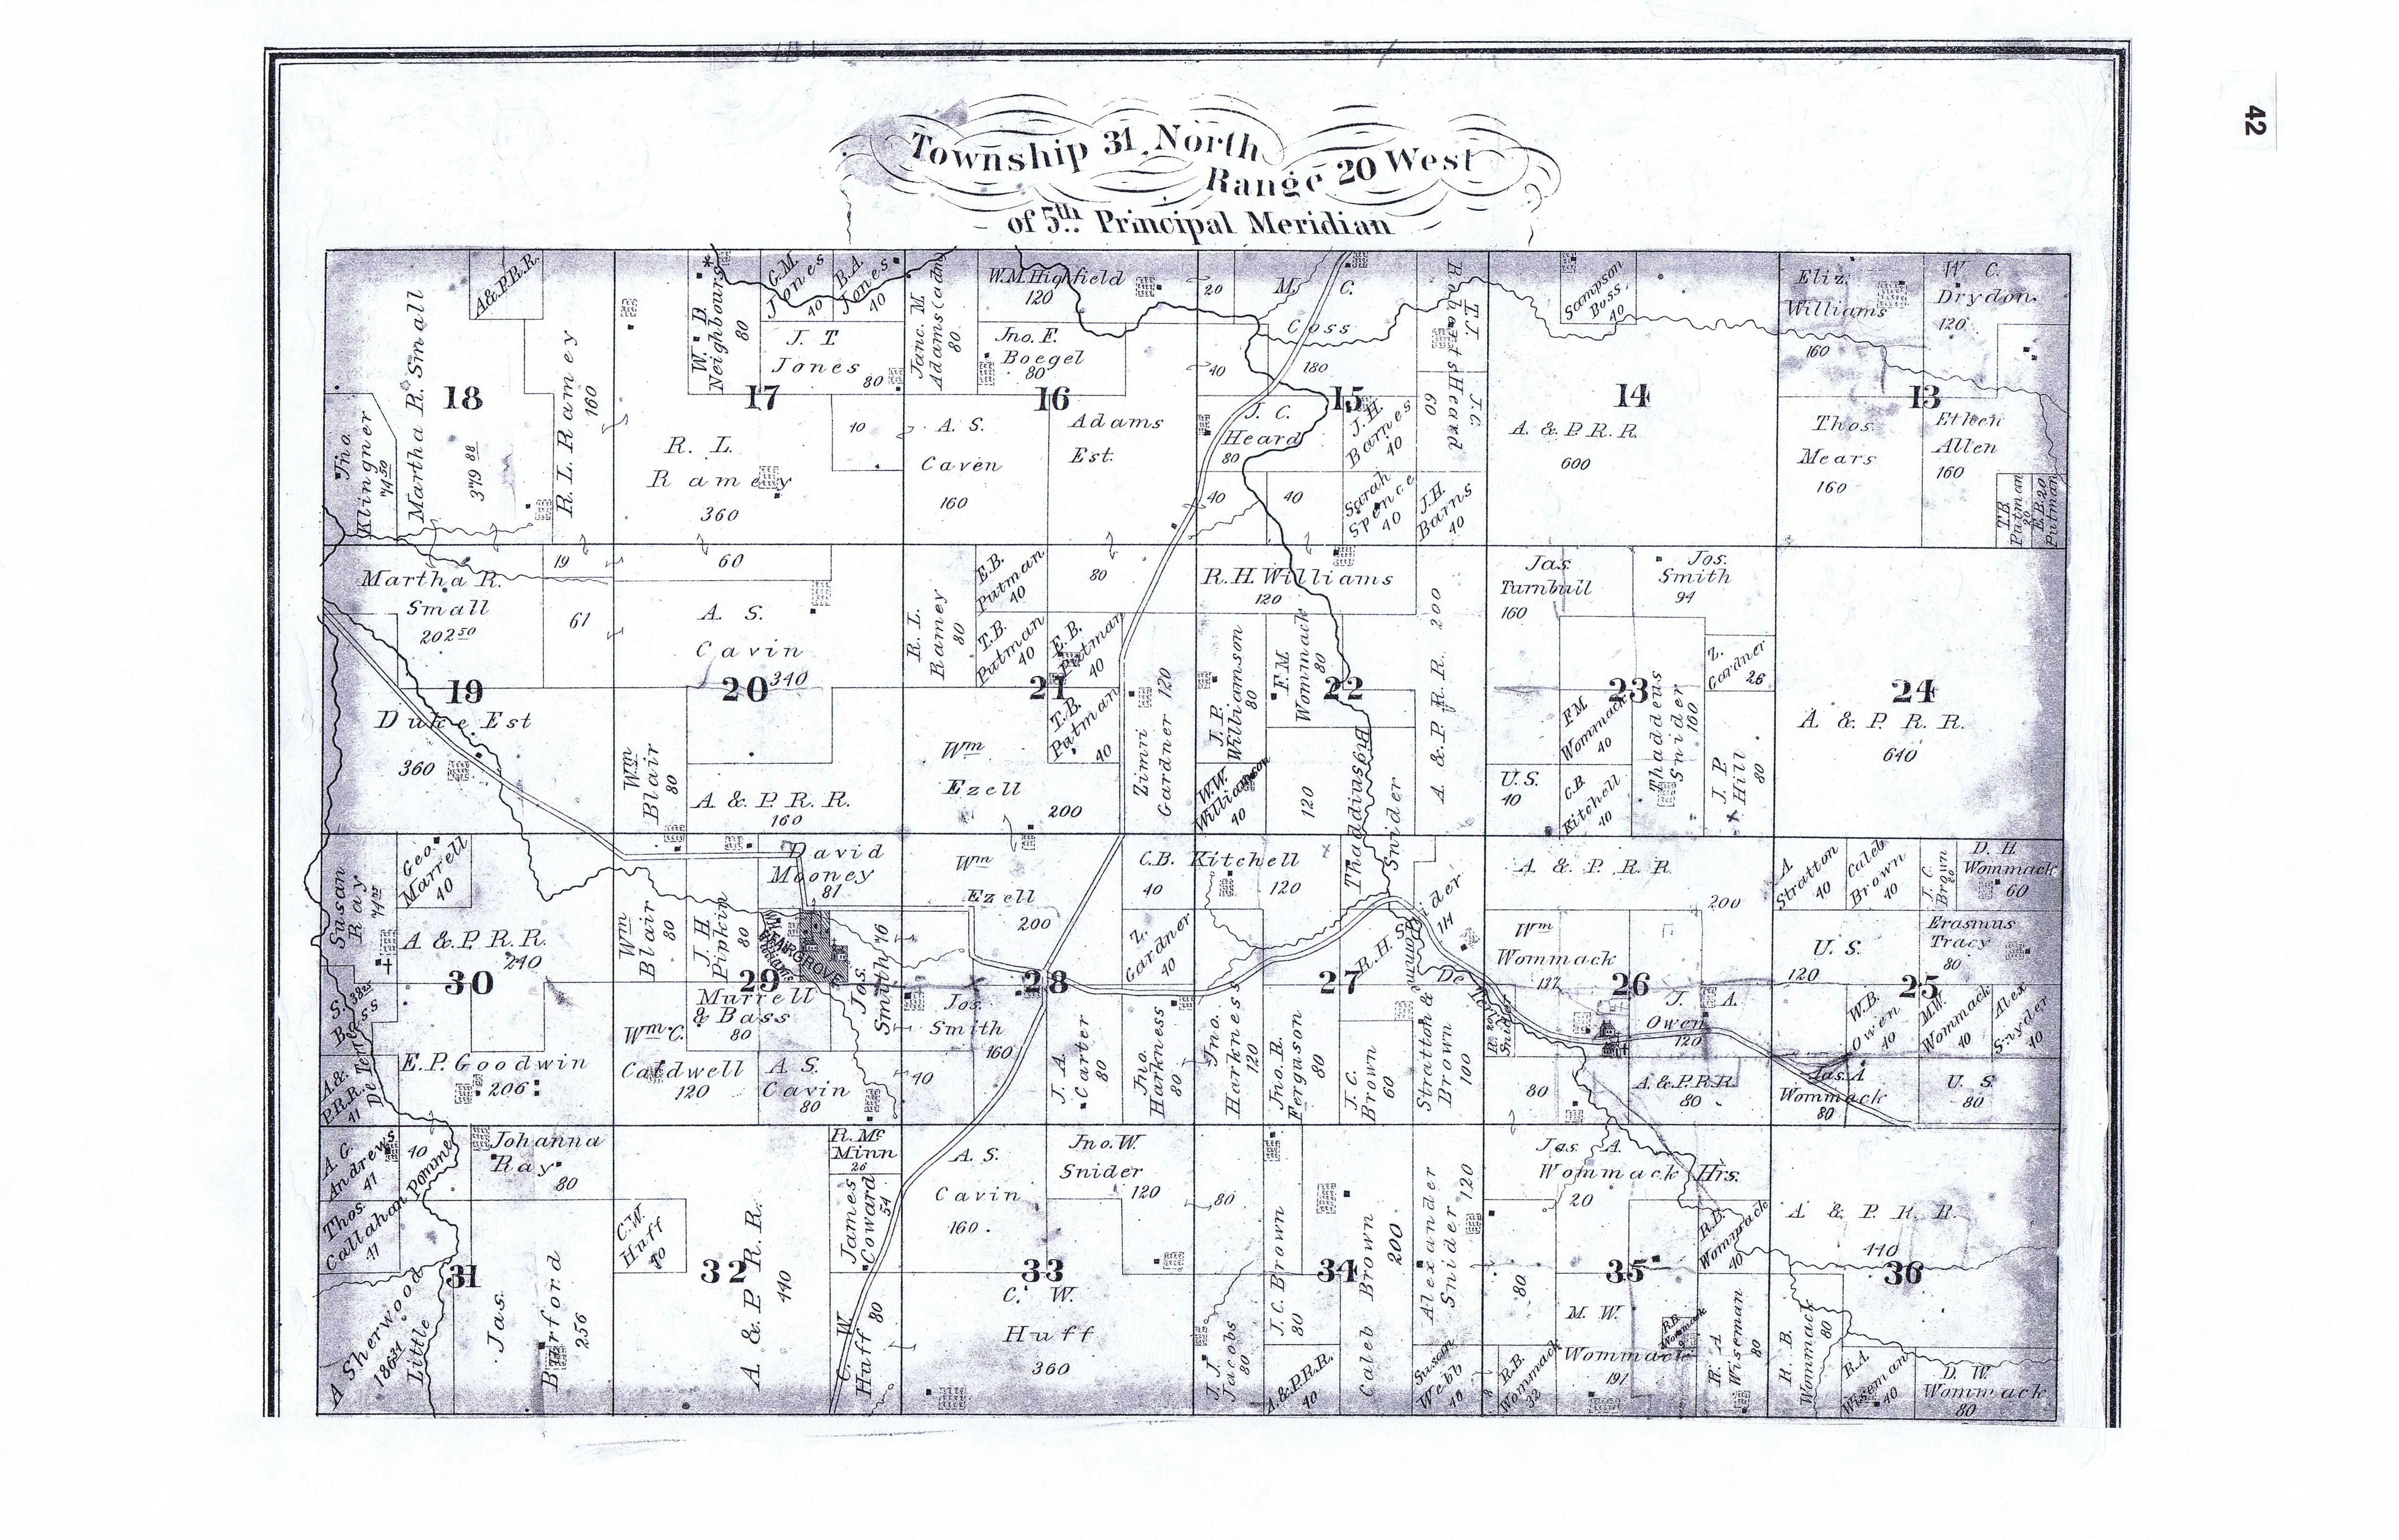 42
Township 31 North
Range 20 West
of 5th Principal Meridian
A&P.R.R.
Martha R. Small
379 88
18
Jno. Klingner
74 50
R.L. Ramey
160
W. B. Neighbours
80
G.M. Jones
40
B.A. Jones
40
J. T.
Jones
80
17
R. L.
Ramey
360
10
Jane M Adams (adm)
80
W.M. Highfield
120
Jno. F.
Boegel
80
16
A. S.
Caven
160
Adams
Est.
20
M. C.
Coss
180
40
15
J. C.
Heard
80
J.H. Barnes
40
40
40
Sarah Spence
40
J.H. Barns
40
T.J.
60
J.C. Heard
Sampson Bass.
40
14
A. & P. R. R.
600
Eliz.
Williams
160
W. C.
Drydon.
120
13
Thos.
Mears
160
Ethen
Allen
160
T.B. Putman
20
E.B. 20
Putman
Martha R.
Small
202 50
19
61
19
Duke Est
360
60
A. S.
Cavin
340
20
Wm Blair
80
A & P. R. R.
160
R. L. Ramey
80
E.B. Putman
40
T.B. Putman
40
80
E.B. Putman
40
T.B. Putman
40
21
Wm
Ezell
200
Zimri Gardner 120
R.H. Williams
120
J. P. Williamson
80
F.M. Wommack
80
22
W.W. Williamson
40
120
Thaddius Snider
A & P. R. R. 200
Jas.
Turnbull
160
Jos.
Smith
94
Z. Gardner
26
23
F.M. Wommack
40
Thaddeus Snider
160
U.S.
40
C.B. Kitchell
40
J. P. Hill
80
24
A. & P. R. R.
640
Susan Ray
Geo. Marrell
40
A & P. R. R.
240
30
S. Bass
E.P. Goodwin
206
A.& P.R.R.
41
Wm Blair
80
J. H. Pipkin
80
David
Mooney
81
FAIRGROVE
29
Jos. Smith 76
Murrell
& Bass
80
Wm C.
Caldwell
120
A. S.
Cavin
80
Wm
Ezell
200
28
Jos.
Smith
160
40
C.B. Kitchell
40
120
Z. Gardner
40
J. A. Carter
80
Jno. Harkness
80
Jno. Harkness
120
27
R. H. Snider
114
Jno. R. Ferguson
80
J. C. Brown
60
Stratton & Brown
100
Pomme De Terre
A & P. R. R
200
Wm
Wommack
137
26
J. A.
Owen
120
80
A.& P.R.R.
80
A. Stratton
40
Caleb Brown
40
J. C. Brown
20
D. H.
Wommack
60
U. S.
120
Erasmus
Tracy
80
25
W.B. Owen
40
M.W. Wommack
40
Alex Snyder
40
Jas. A.
Wommack
80
U. S.
80
A. G. Andrews
47
40
Thos. Callahan
Pomme De Terre
Johanna
Ray
80
31
A Sherwood
186 31
Little
Jas. Burford
256
C.W. Huff
40
32
A & P R. R.
440
R. Mc
Minn
26
James Coward
54
C. W. Huff
80
A. S.
Cavin
160.
Jno. W.
Snider
120
33
C. W.
Huff
360
80
J. J. Jacobs
80
J. C. Brown
80
A.& P.R.R.
40
34
Caleb Brown
200
Alexander Snider
120
Susan Webb
40
Jas. A.
Wommack Hrs.
20
80
35
R.B. Wommack
40
M. W.
Wommack
191
R.B. Wommack
32
R. A Wiseman
80
A & P. R. R.
440
36
R. B. Wommack
80
R.A. Wiseman
40
D. W.
Wommack
80